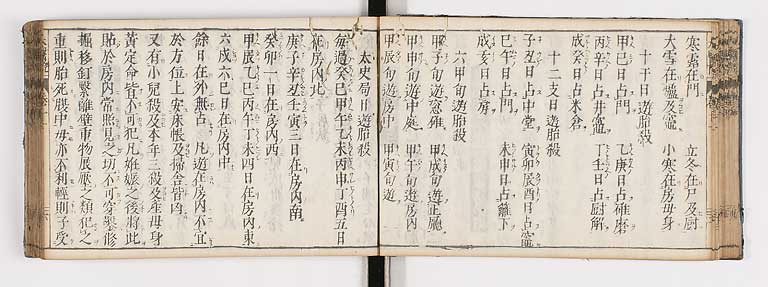 寒露在門 立冬在戶及厨
大雪在爐及竈 小寒在房母身
十干日遊胎殺
甲巳日占門 乙庚日占碓磨
丙辛日占井竈 丁壬日占厨厠
戊癸日占米倉
十二支日遊胎殺
子丑日占中堂 寅卯辰酉日占竈
巳午日占門 未申日占籬下
戌亥日占房
六甲旬遊胎殺
甲子旬遊窓碓 甲戌旬遊正廳
甲申旬遊中庭 甲午旬遊房内
甲辰旬遊房中 甲寅旬遊
太史局日遊胎殺
每遇癸巳甲午乙未丙申丁酉五日
在房内北
庚子辛丑壬寅三日在房内南
癸卯一日在房内西
甲辰乙巳丙午丁未四日在房内東
六戊六己日在房内中
餘日在外無占 凡遊在房内不宜
於方位上安床帳及掃舍皆凶
又有小兒殺及本年三殺及產母身
黃定命皆不可犯凡姙娠之後將此
貼於房内常照見之切不可穿鑿修
掘移釘繫籬壁重物展壓之類犯之
重則胎死腹中母亦不利輕則子受